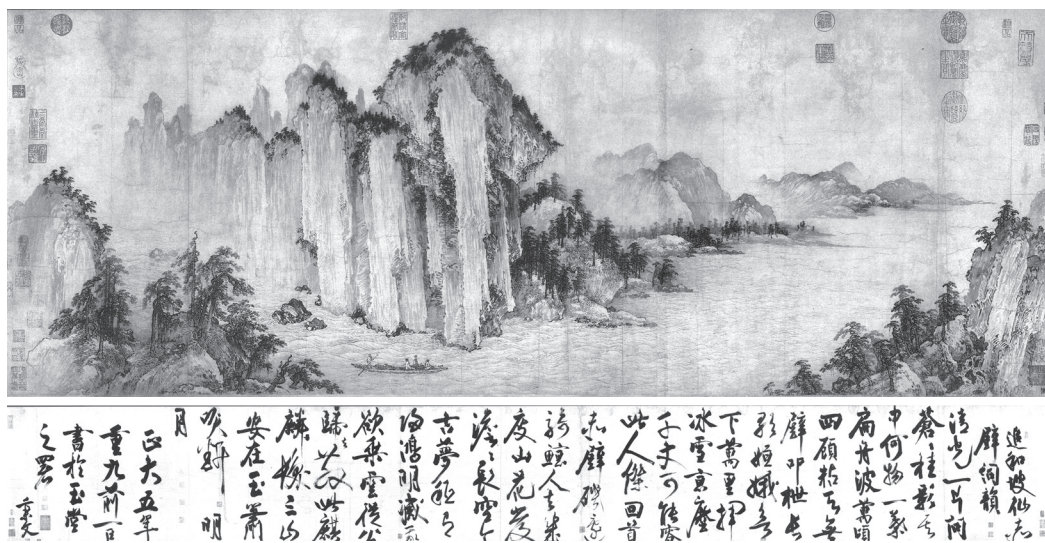 追和坡仙赤
壁詞韻
清光一片問
蒼蒼桂影其
中何物一葉
扁舟波萬頃
四顧粘天無
壁叩枻長
歌姮娥欲
下萬里揮
冰雪京塵
千丈可能容
此人傑回首
赤壁磯邊
騎鯨人去幾
度山花發
澹澹長空今
古夢秖有
歸鴻明滅我
欲乘雲從公
歸去散此麒
麟髮三山
安在玉簫
吹斷明
月
正大五年
重九前一日
書於玉堂
之署 秉文